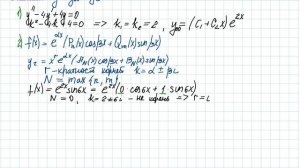 1) y'' - 4y' + 4y = 0
k² - 4k + 4 = 0 => k₁ = k₂ = 2, y₀₀ = (C₁ + C₂x) e^{2x}
2) f(x) = e^{αx} (Pₙ(x) cos βx + Qₘ(x) sin βx)
y = x^r e^{αx} (A_N(x) cos βx + B_N(x) sin βx)
r - кратность корня k = α ± βi
N = max {n, m}
f(x) = e^{2x} sin 6x = e^{2x} (0 cos 6x + 1 sin 6x)
N = 0, k = 2 ± 6i - не корень => r =